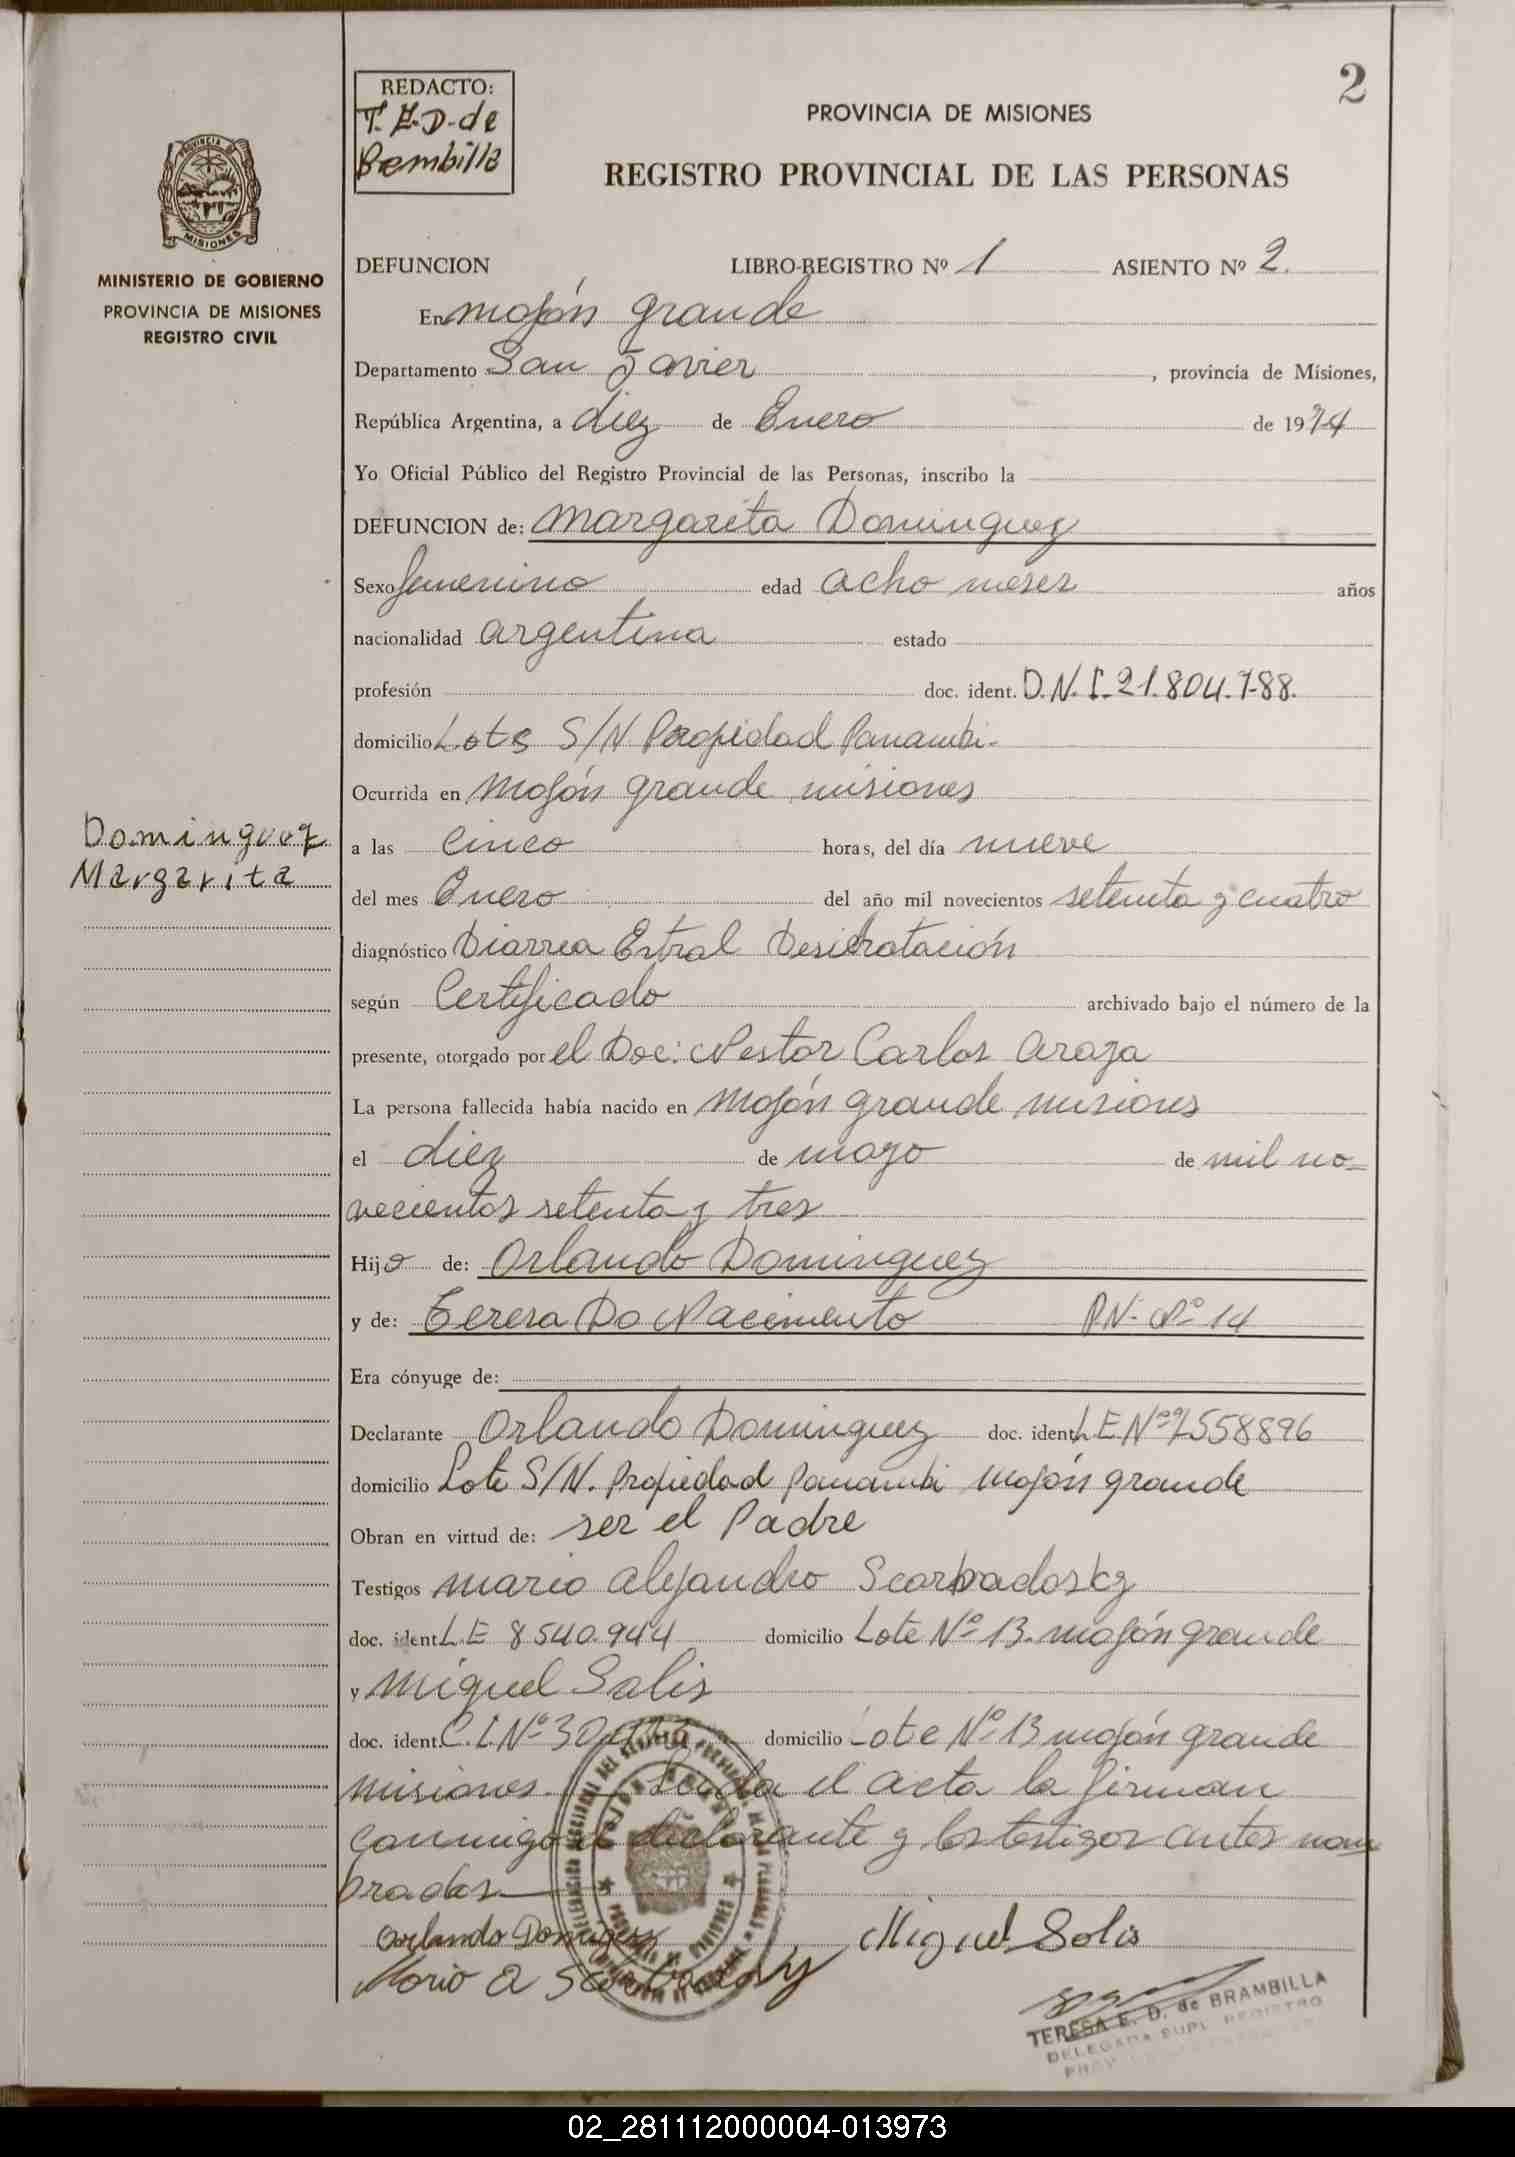 2
REDACTO:
T. E. D. de
Bembilla
PROVINCIA DE MISIONES
REGISTRO PROVINCIAL DE LAS PERSONAS
PROVINCIA DE
MISIONES
MINISTERIO DE GOBIERNO
PROVINCIA DE MISIONES
REGISTRO CIVIL
DEFUNCION LIBRO-REGISTRO Nº 1 ASIENTO Nº 2.
En mojón grande
Departamento San Javier, provincia de Misiones,
República Argentina, a diez de Enero de 1974
Yo Oficial Público del Registro Provincial de las Personas, inscribo la
DEFUNCION de: Margarita Dominguez
Sexo femenino edad ocho meses años
nacionalidad argentina estado
profesión doc. ident. D.N.I. 21.804.788.
domicilio Lote S/N Propiedad Panambi.
Ocurrida en Mojón grande misiones
Dominguez
Margarita
a las Cinco horas, del día nueve
del mes Enero del año mil novecientos setenta y cuatro
diagnóstico Diarrea Estral Desidratación
según Certificado archivado bajo el número de la
presente, otorgado por el Doc: Nestor Carlos Aroza
La persona fallecida había nacido en Mojón grande misiones
el diez de mayo de mil no-
vecientos setenta y tres
Hijo de: Orlando Dominguez
y de: Teresa Do Nacimento P.N- Nº 14
Era cónyuge de:
Declarante Orlando Dominguez doc. ident. L E Nº 7558896
domicilio Lote S/N. Propiedad Panambi Mojón grande
Obran en virtud de: ser el Padre
Testigos Mario Alejandro Scorbadosky
doc. ident. L.E 8540.944 domicilio Lote Nº 13. mojón grande
y Miguel Solis
doc. ident. C.I. Nº domicilio Lote Nº 13 mojón grande
misiones. Leida el acta la firman
conmigo el declarante y los testigos antes nom
brados
Orlando Dominguez Miguel Solis
Mario A
TERESA E. D. de BRAMBILLA
DELEGADA SUPL. REGISTRO
02_281112000004-013973